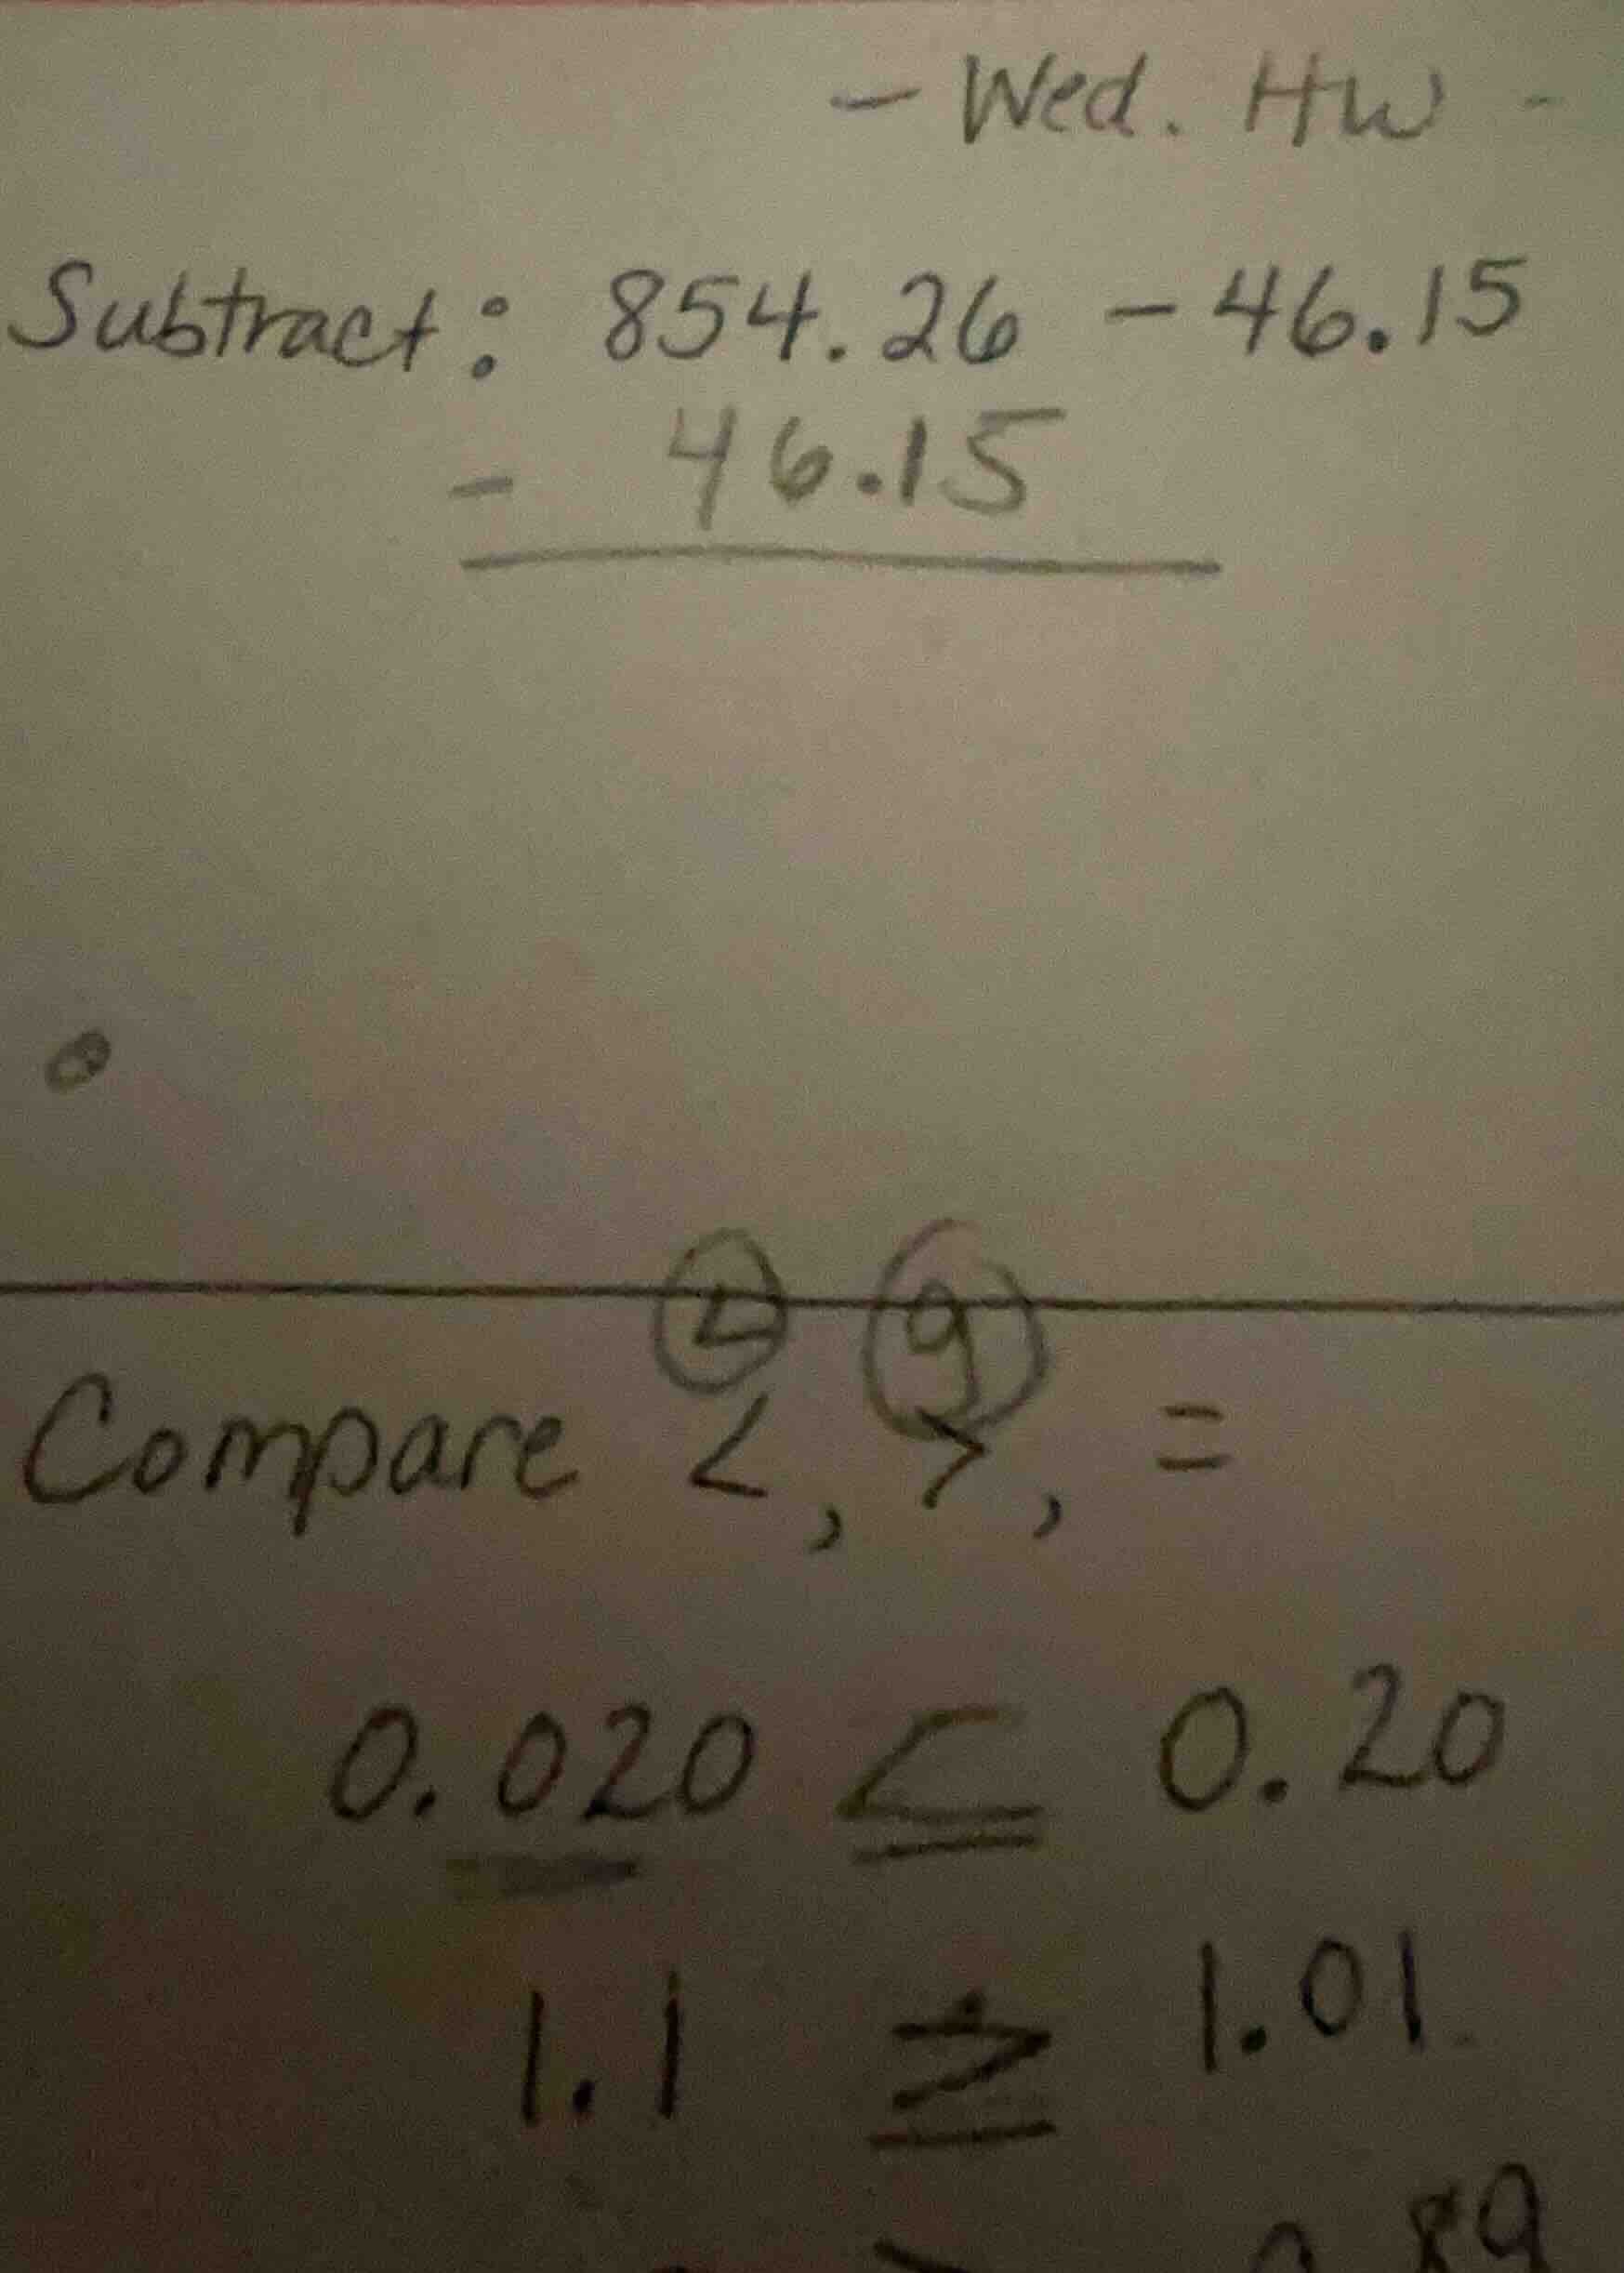 - Wed. HW -
Subtract: 854.26 - 46.15
- 46.15
L g
Compare <, >, =
0.020 < 0.20
1.1 > 1.01
.89